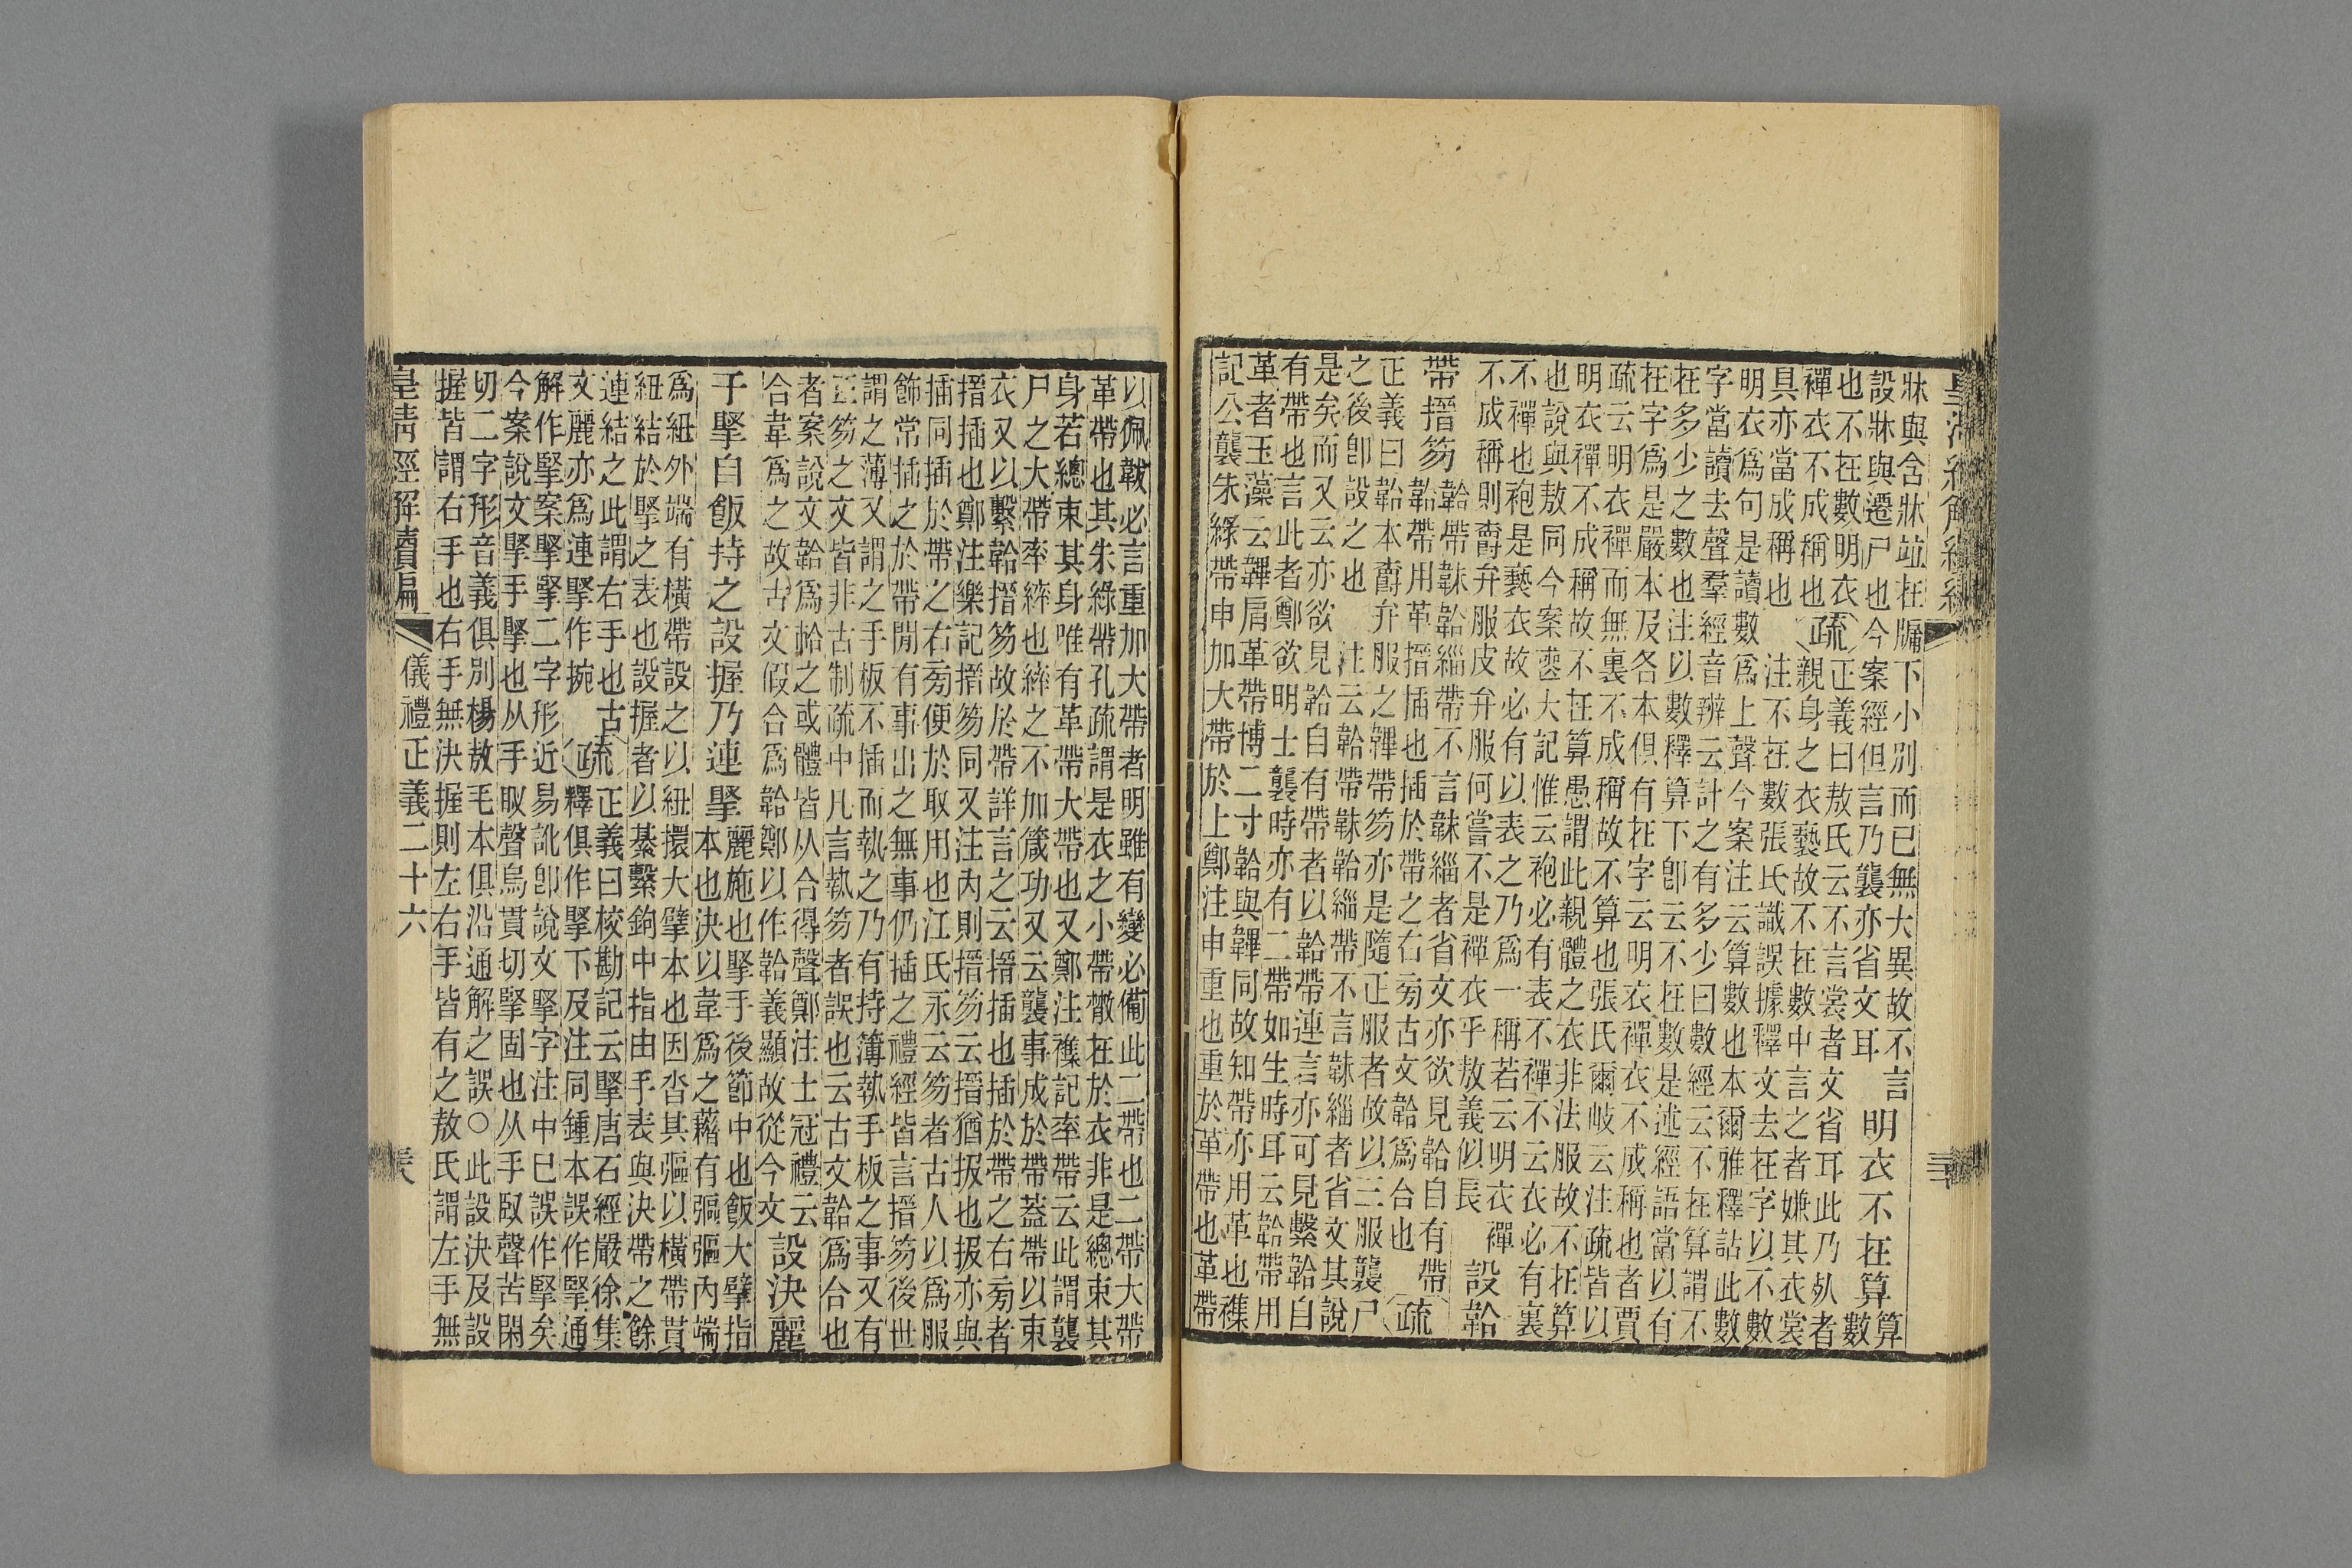 皇清經解續編
三
牀與含牀竝在牖下小別而已無大異故不言
設牀與遷尸也今案經但言乃襲亦省文耳
明衣不在算
算
數
也不在數明衣
襌衣不成稱也
疏
正義曰敖氏云不言裳者文省耳此乃者
親身之衣褻故不在數中言之者嫌其衣裳
具亦當成稱也 注不在數張氏識誤據釋文去在字以不數
明衣爲句是讀數爲上聲今案注云算數也本爾雅釋詁此數
字當讀去聲羣經音辨云計之有多少曰數經云不在算謂不
在多少之數也注以數釋算下卽云不在數是述經語當以有
在字爲是嚴本及各本俱有在字云明衣襌衣不成稱也者賈
疏云明衣襌而無裏不成稱故不算也張氏爾岐云注疏皆以
明衣襌不成稱故不在算愚謂此親體之衣非法服故不在算
也說與敖同今案䘮大記惟云袍必有表不襌不云衣必有裏
不襌也袍是褻衣故必有以表之乃爲一稱若云明衣襌
不成稱則爵弁服皮弁服何嘗不是襌衣乎敖義似長
設韐
帶搢笏
韐帶韎韐緇帶不言韎緇者省文亦欲見韐自有帶
韐帶用革搢插也插於帶之右旁古文韐爲合也
疏
正義曰韐本爵弁服之韠帶笏亦是隨正服者故以三服襲尸
之後卽設之也 注云韐帶韎韐緇帶不言韎緇者省文其說
是矣而又云亦欲見韐自有帶者以韐帶連言亦可見繫韐自
有帶也言此者鄭欲明士襲時亦有二帶如生時耳云韐帶用
革者玉藻云韠肩革帶博二寸韐與韠同故知帶亦用革也襍
記公襲朱綠帶申加大帶於上鄭注申重也重於革帶也革帶
以佩韍必言重加大帶者明雖有變必備此二帶也二帶大帶
革帶也其朱綠帶孔疏謂是衣之小帶㪚在於衣非是總束其
身若總束其身唯有革帶大帶也又鄭注襍記率帶云此謂襲
尸之大帶率繂也繂之不加箴功又云襲事成於帶蓋帶以束
衣又以繫韐搢笏故於帶詳言之云搢插也插於帶之右旁者
搢插也鄭注樂記搢笏同又注內則搢笏云搢猶扱也扱亦與
插同插於帶之右旁便於取用也江氏永云笏者古人以爲服
飾常插之於帶閒有事出之無事仍插之禮經皆言搢笏後世
謂之薄又謂之手板不插而執之乃有持簿執手板之事又有
笏之文皆非古制疏中凡言執笏者誤也云古文韐爲合也
者案說文韐爲帢之或體皆从合得聲鄭注士冠禮云
合韋爲之故古文假合爲韐鄭以作韐義顯故從今文
設決麗
于掔自飯持之設握乃連掔
麗施也掔手後節中也飯大擘指
本也決以韋爲之藉有彄彄內端
爲紐外端有橫帶設之以紐擐大擘本也因沓其彄以橫帶貫
紐結於掔之表也設握者以綦繫鉤中指由手表與決帶之餘
連結之此謂右手也古
文麗亦爲連掔作捥
疏
正義曰校勘記云掔唐石經嚴徐集
釋俱作掔下及注同鍾本誤作掔通
解作掔案掔掔二字形近易訛卽說文掔字注中已誤作掔矣
今案說文掔手掔也从手𠬞聲烏貫切掔固也从手臤聲苦閑
切二字形音義俱別楊敖毛本俱沿通解之誤〇此設決及設
握皆謂右手也右手無決握則左右手皆有之敖氏謂左手無
皇清經解續編
儀禮正義二十六